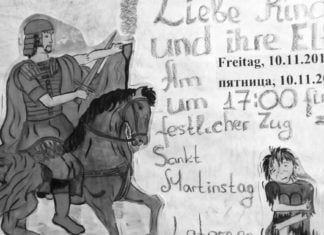 Liebe
und ihre
Freitag, 10.11.201
Am
пятница, 10.11.20
um 17:00
festlicher Zug
Sankt
Martinstag